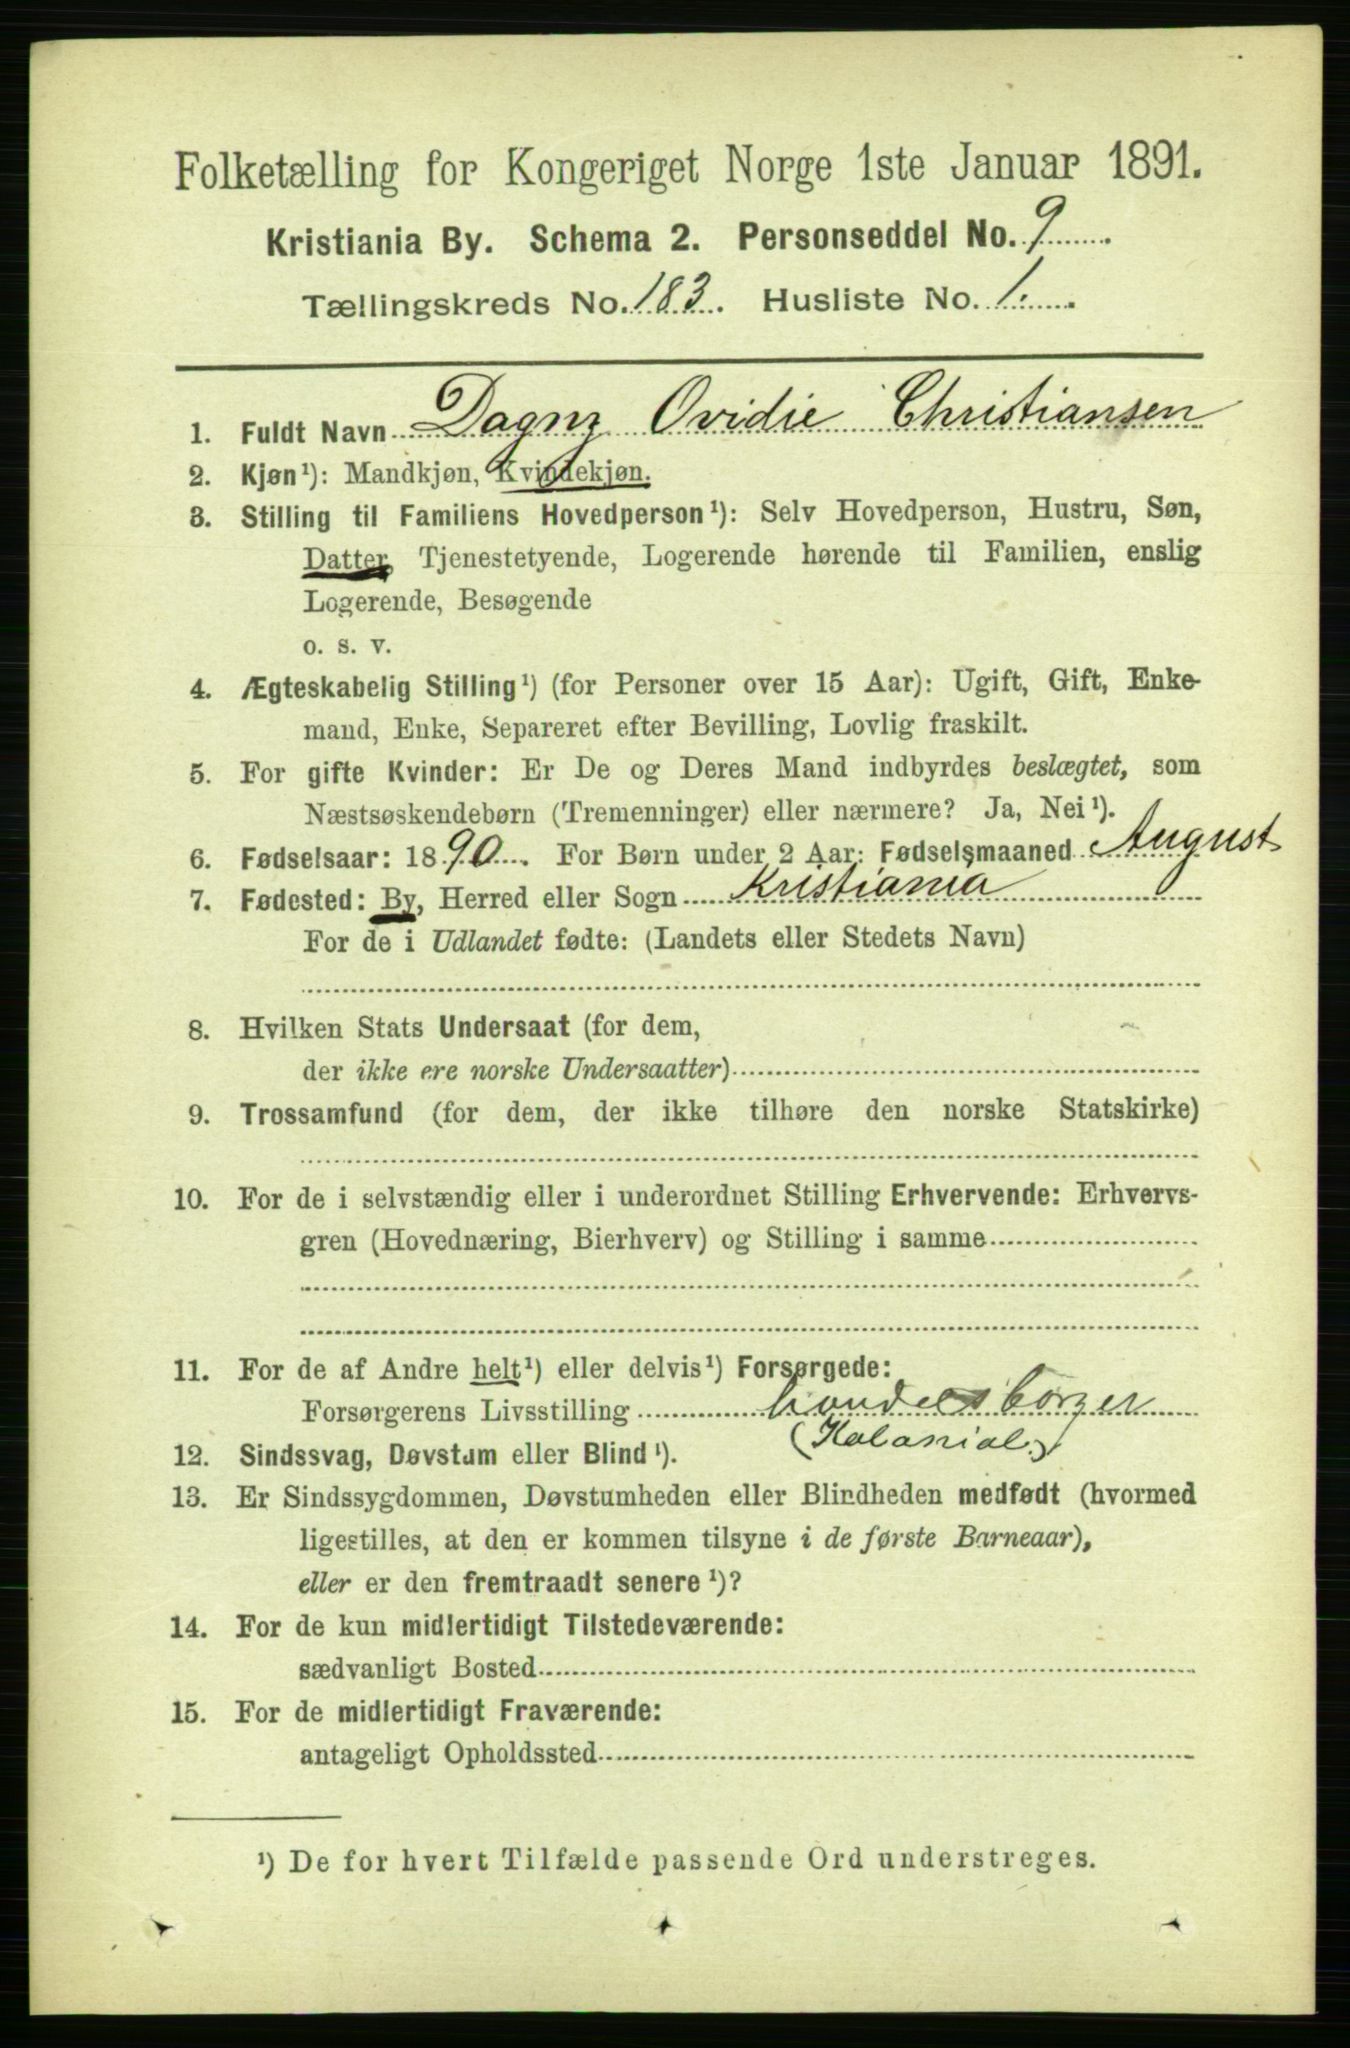 Folketælling for Kongeriget Norge 1ste Januar 1891.
Kristiania By. Schema 2. Personseddel No. 9
Tællingskreds No. 183. Husliste No. 1.
1. Fuldt Navn Dagny Ovidie Christiansen
2. Kjøn¹): Mandkjøn, Kvindekjøn.
3. Stilling til Familiens Hovedperson¹): Selv Hovedperson, Hustru, Søn,
Datter, Tjenestetyende, Logerende hørende til Familien, enslig
Logerende, Besøgende
o. s. v.
4. Ægteskabelig Stilling¹) (for Personer over 15 Aar): Ugift, Gift, Enke-
mand, Enke, Separeret efter Bevilling, Lovlig fraskilt.
5. For gifte Kvinder: Er De og Deres Mand indbyrdes beslægtet, som
Næstsøskendebørn (Tremenninger) eller nærmere? Ja, Nei¹).
6. Fødselsaar: 1890. For Børn under 2 Aar: Fødselsmaaned August
7. Fødested: By, Herred eller Sogn Kristiania
For de i Udlandet fødte: (Landets eller Stedets Navn)
8. Hvilken Stats Undersaat (for dem,
der ikke ere norske Undersaatter)
9. Trossamfund (for dem, der ikke tilhøre den norske Statskirke)
10. For de i selvstændig eller i underordnet Stilling Erhvervende: Erhvervs-
gren (Hovednæring, Bierhverv) og Stilling i samme
11. For de af Andre helt¹) eller delvis¹) Forsørgede:
Forsørgerens Livsstilling handelsborger
(Kolonial)
12. Sindssvag, Døvstum eller Blind¹).
13. Er Sindssygdommen, Døvstumheden eller Blindheden medfødt (hvormed
ligestilles, at den er kommen tilsyne i de første Barneaar),
eller er den fremtraadt senere¹)?
14. For de kun midlertidigt Tilstedeværende:
sædvanligt Bosted
15. For de midlertidigt Fraværende:
antageligt Opholdssted
¹) De for hvert Tilfælde passende Ord understreges.